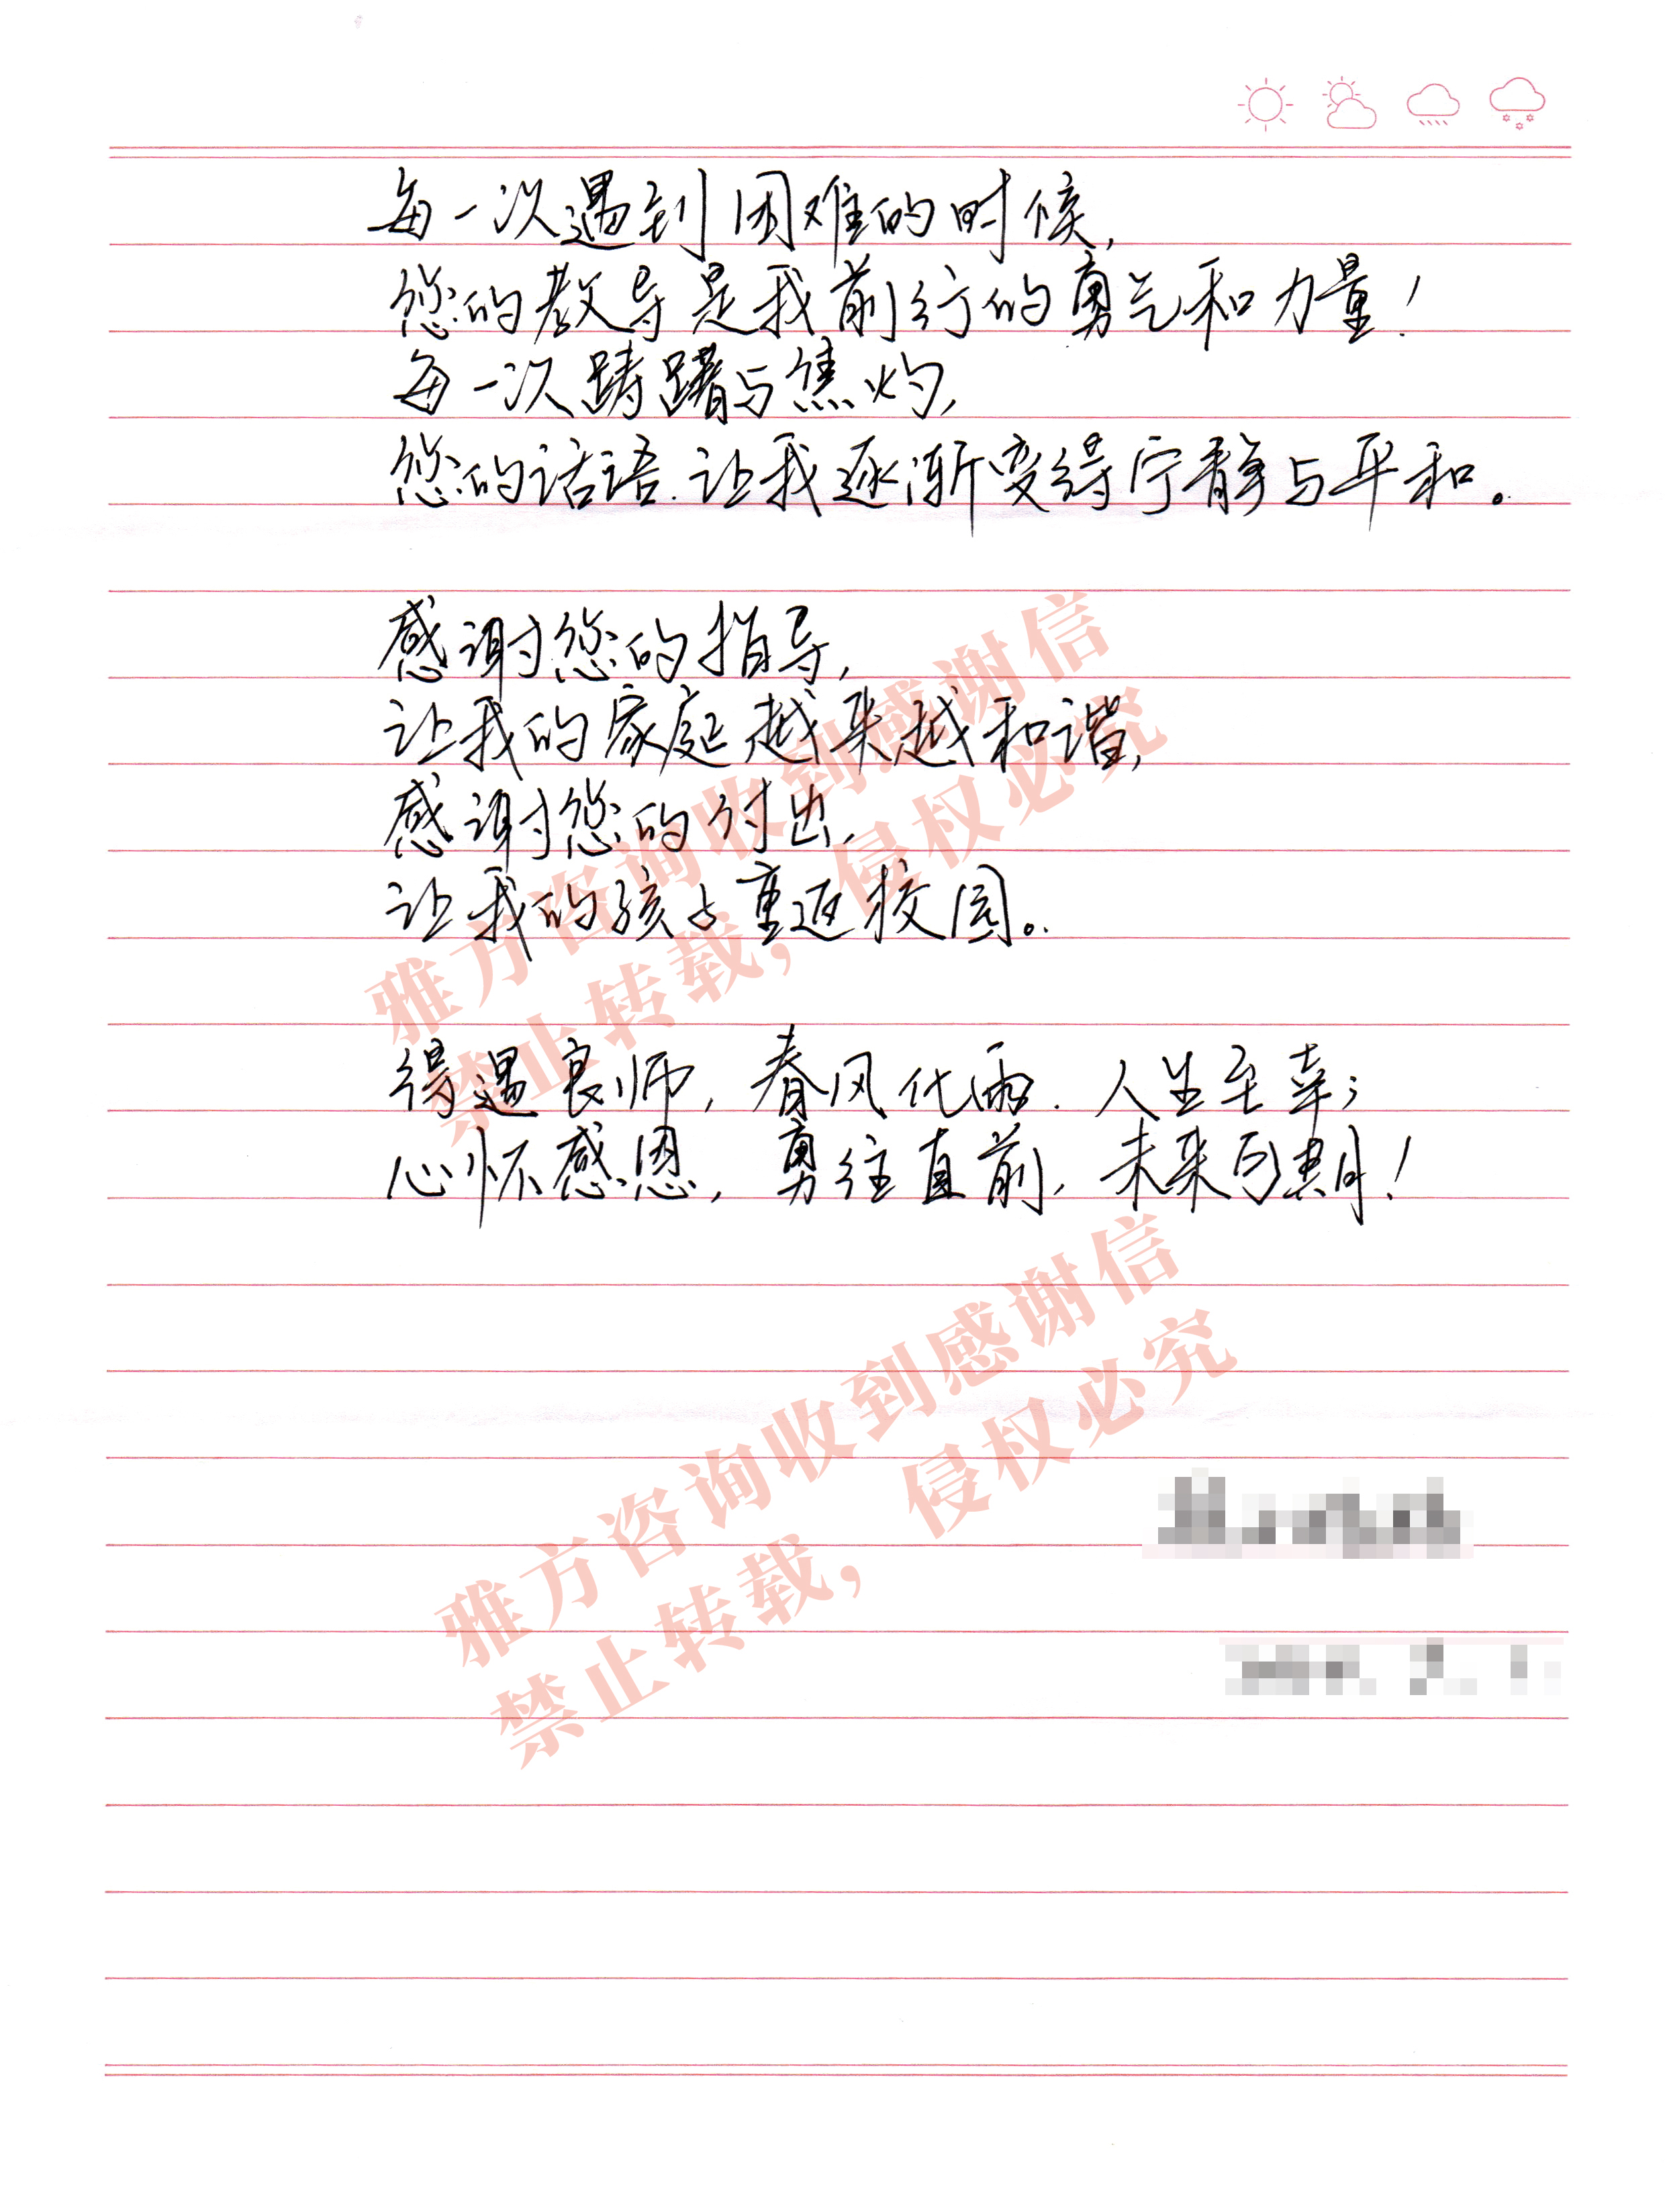 每一次遇到困难的时候,
您的教导是我前行的勇气和力量!
每一次踌躇与焦灼,
您的话语.让我逐渐变得宁静与平和。
感谢您的指导,
让我的家庭越来越和谐,
感谢您的付出,
让我的孩子重返校园。
得遇良师,春风化雨.人生至幸;
心怀感恩,勇往直前,未来可期!
雅方咨询收到感谢信
禁止转载,侵权必究
雅方咨询收到感谢信
禁止转载,侵权必究